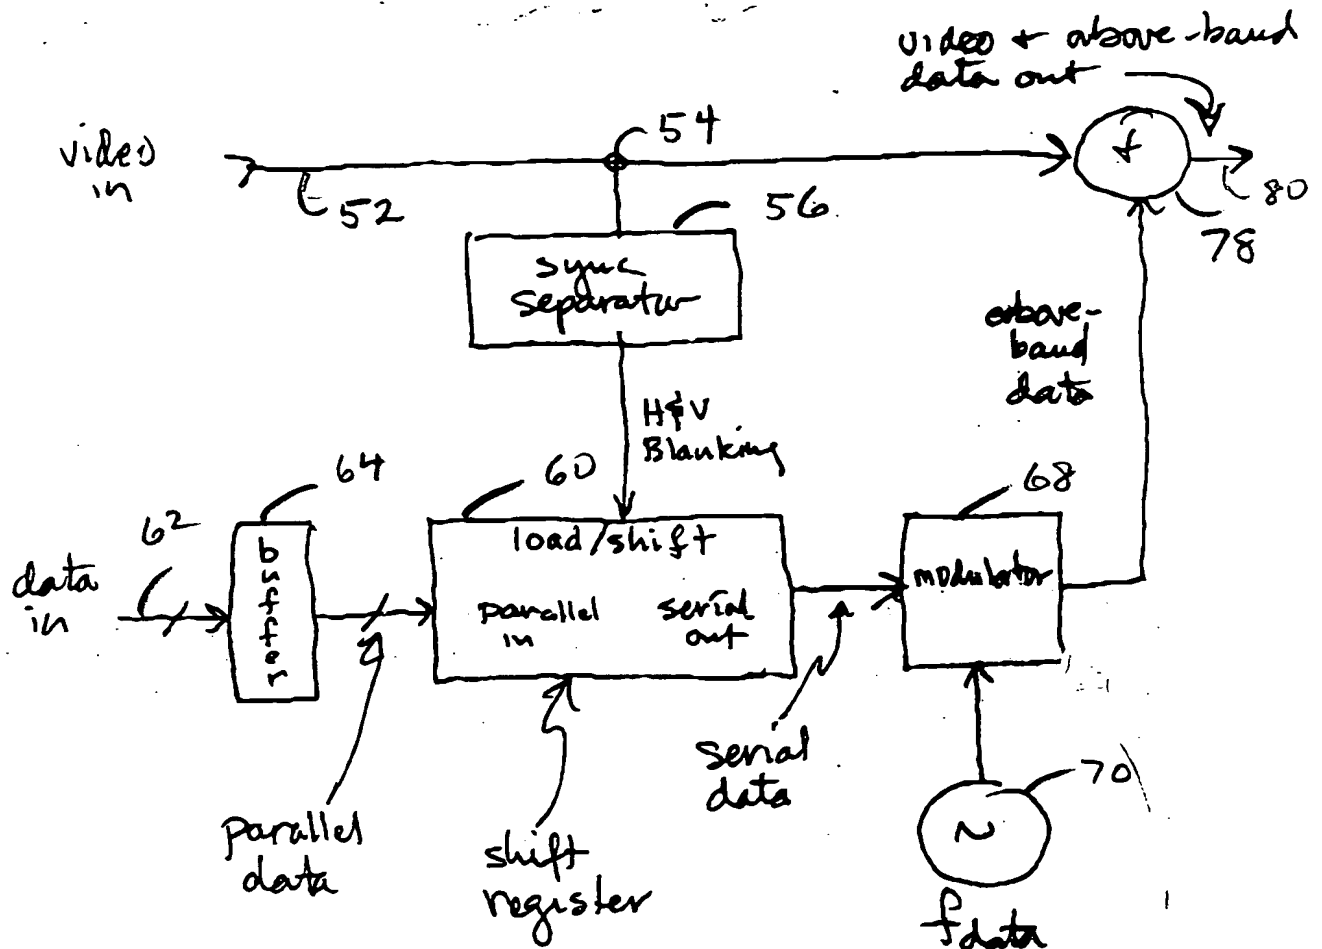 video + above-band
data out
video
in
52
54
+
80
78
56
sync
separator
above-
band
data
H&V
Blanking
64
60
68
62
data
in
buffer
load/shift
parallel
in
serial
out
modulator
parallel
data
shift
register
serial
data
70
~
fdata